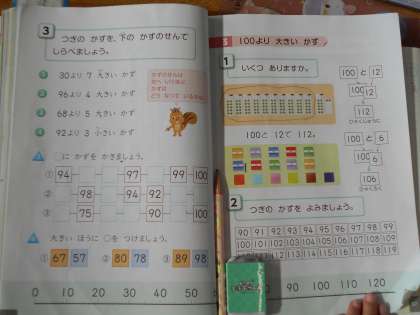 3
つぎの かずを、下の かずのせんで
しらべましょう。
1 30より 7 大きい かず
2 96より 4 大きい かず
3 68より 5 大きい かず
4 92より 3 小さい かず
かずのせんは
□に かずを かきましょう。
① 94 97 99 100
② 98 94 92
③ 75 90 100
大きい ほうに ○を つけましょう。
① 67 57 ② 80 78 ③ 89 98
0 10 20 30 40 50
3 100より 大きい かず
1
いくつ ありますか。
100 と 12
100 12
112
ひゃくじゅうに
100と 12で 112。
100 と 6
100 6
106
ひゃくろく
2
つぎの かずを よみましょう。
90 91 92 93 94 95 96 97 98 99
100 101 102 103 104 105 106 107 108 109
112 113 114 115 116 117 118 119
80 90 100 110 120